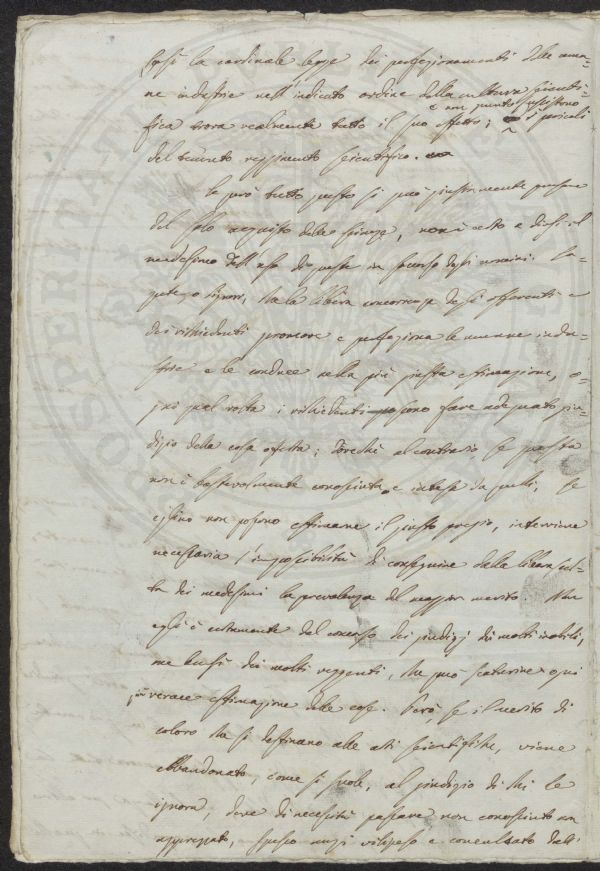 Così la cardinale legge dei perfezionamenti delle uma-
ne industrie nell'indicato ordine della cultura scienti-
e non punto sussistono
fica trova realmente tutto il suo effetto; i pericoli
del temuto regimento scientifico.
Se però tutto questo si può giustamente pensare
del solo acquisto delle scienze, non è certo a dirsi il
medesimo dell'uso di queste in soccorso degli uomini. Im-
che la libera concorrenza degli offerenti e
dei richiedenti promove e perfeziona le umane indu-
strie e le conduce nella più giusta estimazione, o-
gni qual volta i richiedenti possono fare adeguato giu-
dizio della cosa offerta; dovechè al contrario se questa
non è bastevolmente conosciuta e intesa da quelli, se
essino non possono estimare il giusto pregio, interviene
necessaria l'impossibilità di conseguire dalla libera scel-
ta dei medesimi la prevalenza del maggior merito. Non
egli è certamente dal concorso dei giudizj di molti inabili,
ma bensì dei molti veggenti, che può scaturire ogni
più verace estimazione delle cose. Però, se il merito di
coloro che si destinano alle arti scientifiche, viene
abbandonato, come si suole, al giudizio di chi le
ignora, deve di necessità passare non conosciuto non
apprezzato, spesso anzi vilipeso e conculcato dall'